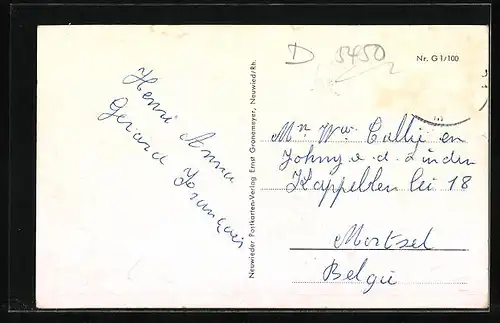 Henri Anna
Gerard François
Neuwieder Postkarten-Verlag Ernst Gronemeyer, Neuwied/Rh.
D 5450
Nr. G 1/100
Mr Wr Collij en
Johny
Kappellen lei 18
Mortsel
Belgie